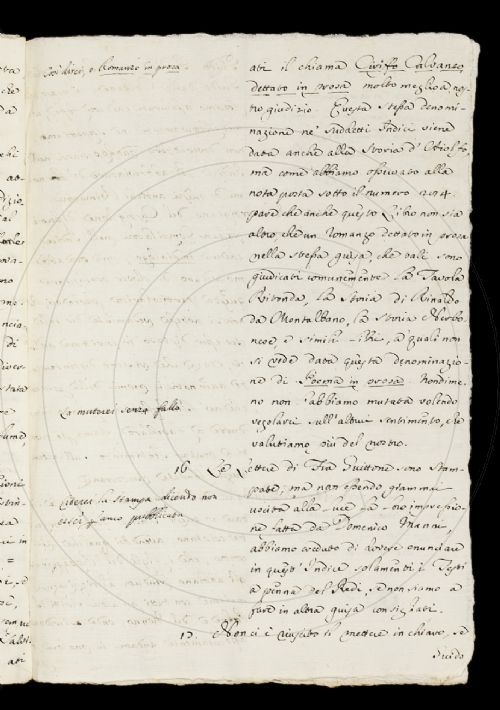 Così direi, o Romanzo in prosa
ati il chiama Ciriffo Calvaneo
dettato in prosa molto meglio a no
stro giudizio. Questa stessa denomi-
nazione ne' sudetti Indici viene
data anche alla Storia d'
ma come abbiamo osservato alla
nota posta sotto il numero
pare che anche questo Libro non sia
altro che un Romanzo dettato in prosa
nella stessa guisa, che tali sono
giudicati comunemente la Tavola
Ritonda, la Storia di Rinaldo
da Montalbano, la Storia Nerbo-
nese, e simili libri, a' quali non
si vede data questa denominazio-
ne di Poema in prosa. Nondime-
no non l'abbiamo mutata volendo
regolarci sull'altrui sentimento, che
valutiamo più del nostro.
La muterei senza fallo
16 Le Lettere di Fra Guittone sono stam-
pate; ma non essendo giammai
uscita alla luce la impressio-
ne fatta da Domenico Manni,
abbiamo creduto di dovere enunciare
in quest'Indice solamente i Testi
a penna del Redi, se non siamo a
fare in altra guisa consigliati.
Citerei la stampa dicendo non
17. Non ci è riuscito di mettere in chiaro, se